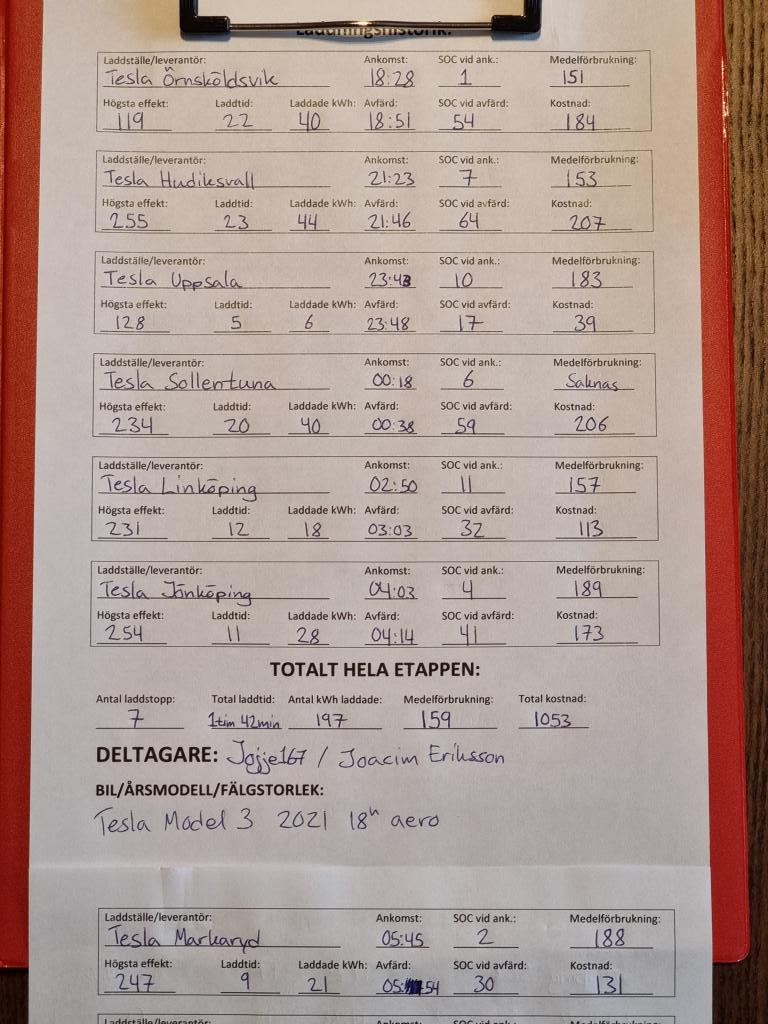 Laddningshistorik:
Laddställe/leverantör: Ankomst: SOC vid ank.: Medelförbrukning:
Tesla Örnsköldsvik 18:28 1 151
Högsta effekt: Laddtid: Laddade kWh: Avfärd: SOC vid avfärd: Kostnad:
119 22 40 18:51 54 184
Laddställe/leverantör: Ankomst: SOC vid ank.: Medelförbrukning:
Tesla Hudiksvall 21:23 7 153
Högsta effekt: Laddtid: Laddade kWh: Avfärd: SOC vid avfärd: Kostnad:
255 23 44 21:46 64 207
Laddställe/leverantör: Ankomst: SOC vid ank.: Medelförbrukning:
Tesla Uppsala 23:43 10 183
Högsta effekt: Laddtid: Laddade kWh: Avfärd: SOC vid avfärd: Kostnad:
128 5 6 23:48 17 39
Laddställe/leverantör: Ankomst: SOC vid ank.: Medelförbrukning:
Tesla Sollentuna 00:18 6 Saknas
Högsta effekt: Laddtid: Laddade kWh: Avfärd: SOC vid avfärd: Kostnad:
234 20 40 00:38 59 206
Laddställe/leverantör: Ankomst: SOC vid ank.: Medelförbrukning:
Tesla Linköping 02:50 11 157
Högsta effekt: Laddtid: Laddade kWh: Avfärd: SOC vid avfärd: Kostnad:
231 12 18 03:03 32 113
Laddställe/leverantör: Ankomst: SOC vid ank.: Medelförbrukning:
Tesla Jönköping 04:03 4 189
Högsta effekt: Laddtid: Laddade kWh: Avfärd: SOC vid avfärd: Kostnad:
254 11 28 04:14 41 173
TOTALT HELA ETAPPEN:
Antal laddstopp: Total laddtid: Antal kWh laddade: Medelförbrukning: Total kostnad:
7 1tim 42min 197 159 1053
DELTAGARE: Jojje167 / Joacim Eriksson
BIL/ÅRSMODELL/FÄLGSTORLEK:
Tesla Model 3 2021 18" aero
Laddställe/leverantör: Ankomst: SOC vid ank.: Medelförbrukning:
Tesla Markaryd 05:45 2 188
Högsta effekt: Laddtid: Laddade kWh: Avfärd: SOC vid avfärd: Kostnad:
247 9 21 05:54 30 131
Laddställe/leverantör: Ankomst: SOC vid ank.: Medelförbrukning: